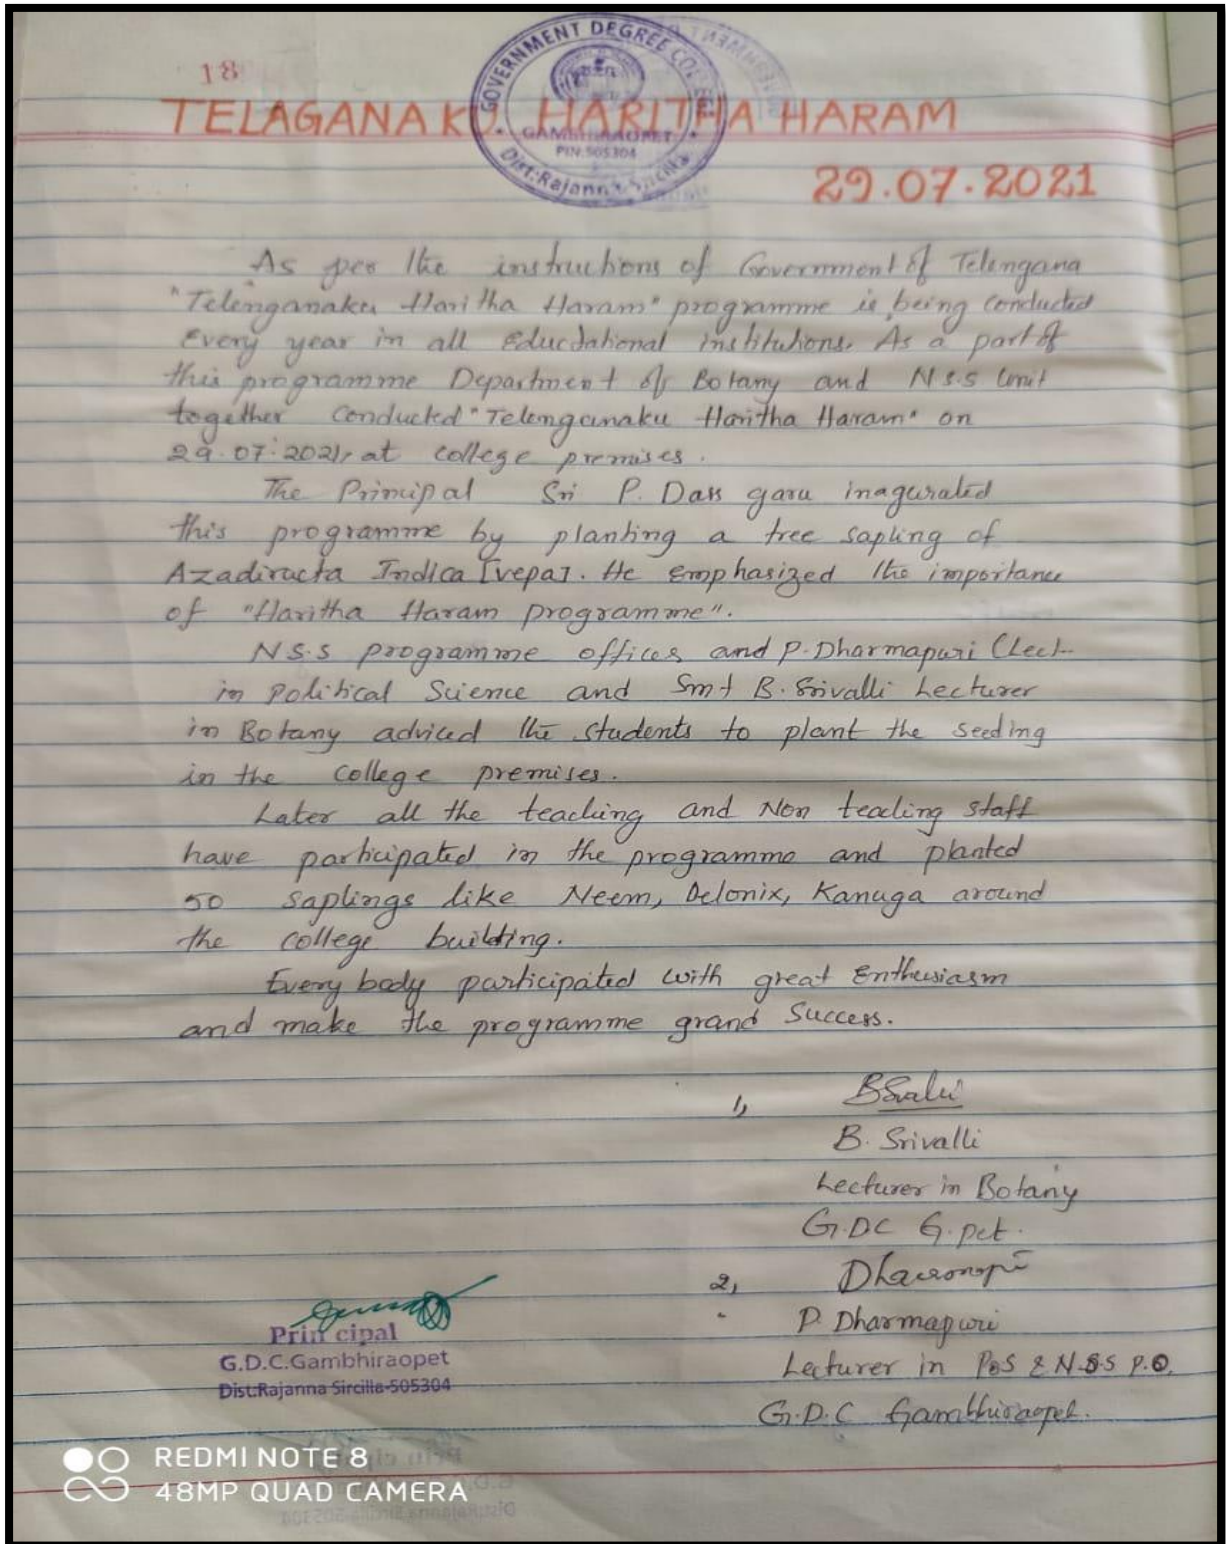 18
GOVERNMENT DEGREE COLLEGE
GAMBHIRAOPET
PIN.505304
Dist:Rajanna Sircilla
TELAGANA KU HARITHA HARAM
29.07.2021
As per the instructions of Government of Telengana
"Telenganaku Haritha Haram" programme is being conducted
Every year in all Educational institutions. As a part of
this programme Department of Botany and N.S.S Unit
together Conducted "Telenganaku Haritha Haram" on
29.07.2021, at college premises.
The Principal Sri P. Dass garu inagurated
this programme by planting a tree sapling of
Azadiracta Indica [vepa]. He emphasized the importance
of "Haritha Haram programme".
N.S.S programme offices and P. Dharmapuri (Lect
in political Science and Smt B. Srivalli Lecturer
in Botany adviced the students to plant the seeding
in the college premises.
Later all the teaching and Non teacling staff
have participated in the programme and planted
50 saplings like Neem, Delonix, Kanuga around
the college building.
Every body participated with great Enthusiasm
and make the programme grand Success.
1,
B. Srivalli
Lecturer in Botany
G.DC G.pet.
2,
P. Dharmapuri
Lecturer in PoS & N.S.S P.O.
G.D.C Gambhiraopet.
Prin cipal
G.D.C.Gambhiraopet
Dist:Rajanna Sircilla-505304
REDMI NOTE 8
48MP QUAD CAMERA